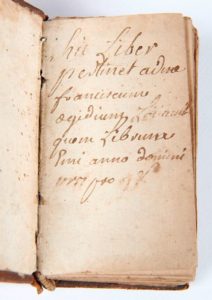 hic Liber
pertinet ad me
franciscum
ægidium
quem Librum
Emi anno domini
pro